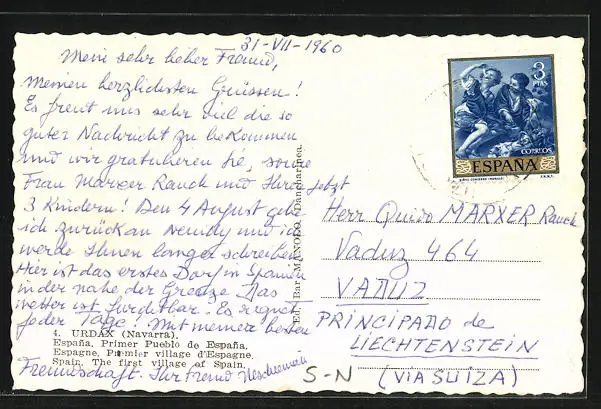 31-VII-1960
Mein sehr lieber Freund,
meinen herzlichsten Grüssen!
Es freut uns sehr viel die so
guter Nachricht zu bekommen
und wir gratulieren Sie, sowie
Frau Marxer Rauck und Ihre jetzt
3 Kindern! Den 4 August gehe
ich zurück an Neudy und ich
werde Ihnen langer schreiben
Hier ist das erstes Dorf in Spanien
in der nahe der Grenze. Das
wetter ist furchtbar. Es regnet
jeder Tage! Mit meiner besten
4. URDAX (Navarra).
España. Primer Pueblo de España.
Espagne. Premier village d'Espagne.
Spain. The first village of Spain.
Freundschaft. Ihr Freund
Ed. Bar MANOLO. Dancharinea.
3
PTAS
CORREOS
ESPAÑA
F.N.M.T.
Herr Guido MARXER Rauck
Vaduz 464
VADUZ
PRINCIPADO de
LIECHTENSTEIN
S-N (VIA SUIZA)